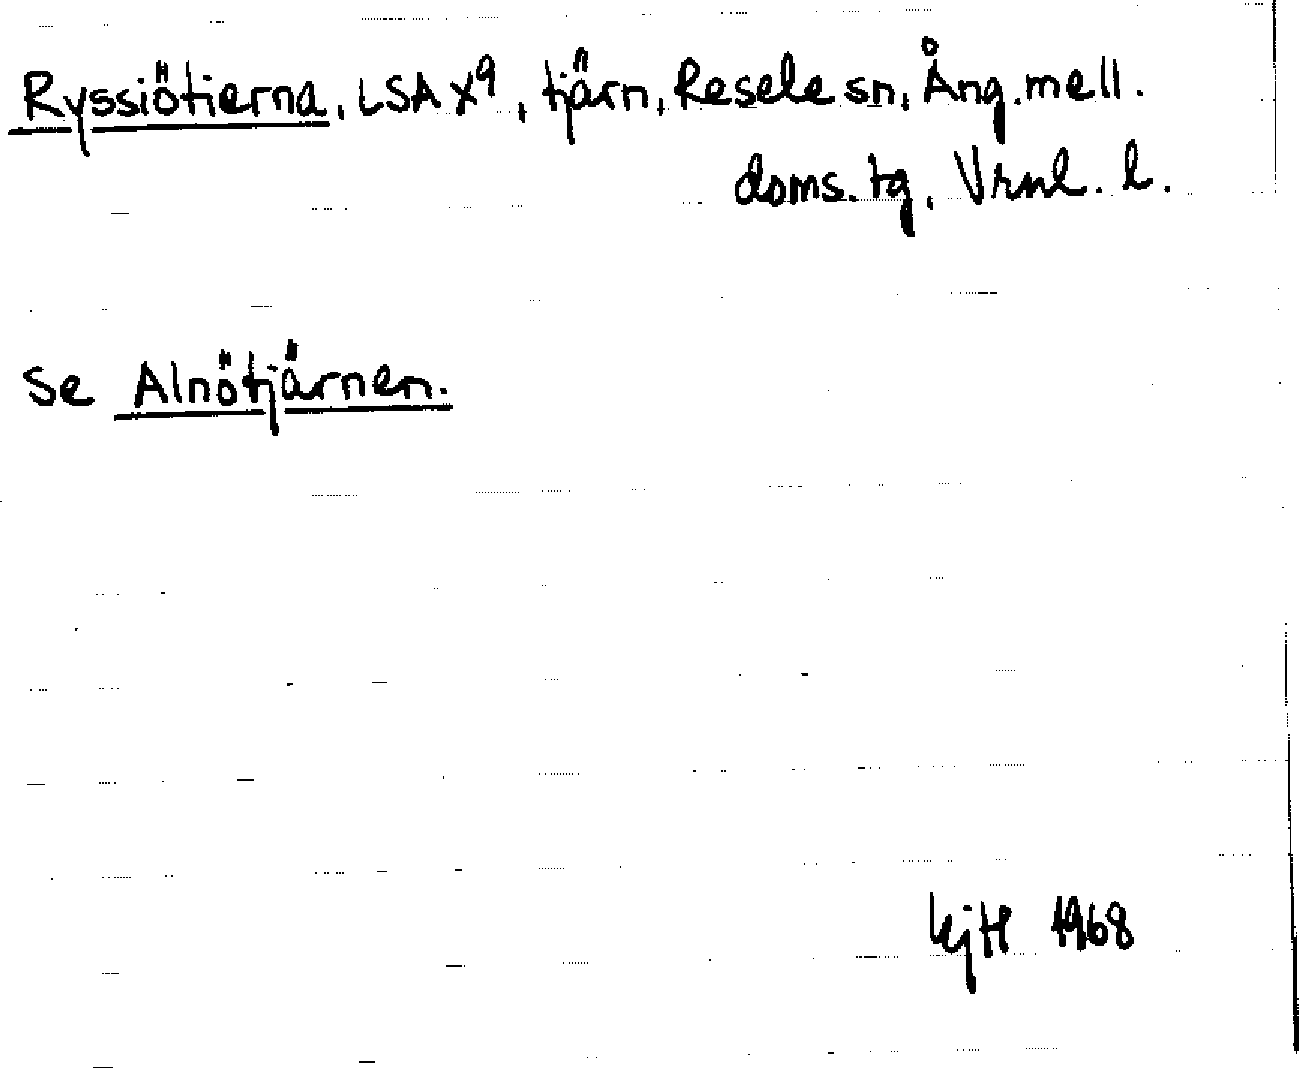 Ryssiötierna, LSA X9, tjärn, Resele sn, Ång. mell.
doms. tg, Vrnl. l.
Se Alnötjärnen.
1968